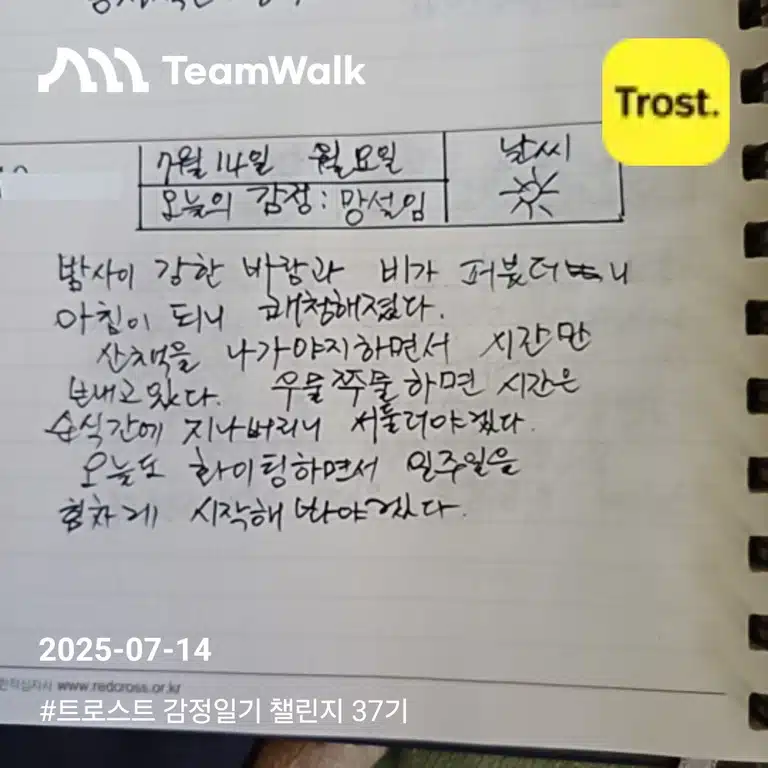 TeamWalk
Trost.
7월 14일 월요일
날씨
오늘의 감정: 망설임
밤사이 강한 바람과 비가 퍼붓더니
아침이 되니 쾌청해졌다.
산책을 나가야지하면서 시간만
보내고있다. 우물쭈물하면 시간은
순식간에 지나버리니 서둘러야겠다.
오늘도 화이팅하면서 일주일을
힘차게 시작해봐야겠다.
2025-07-14
www.redcross.or.kr
#트로스트 감정일기 챌린지 37기